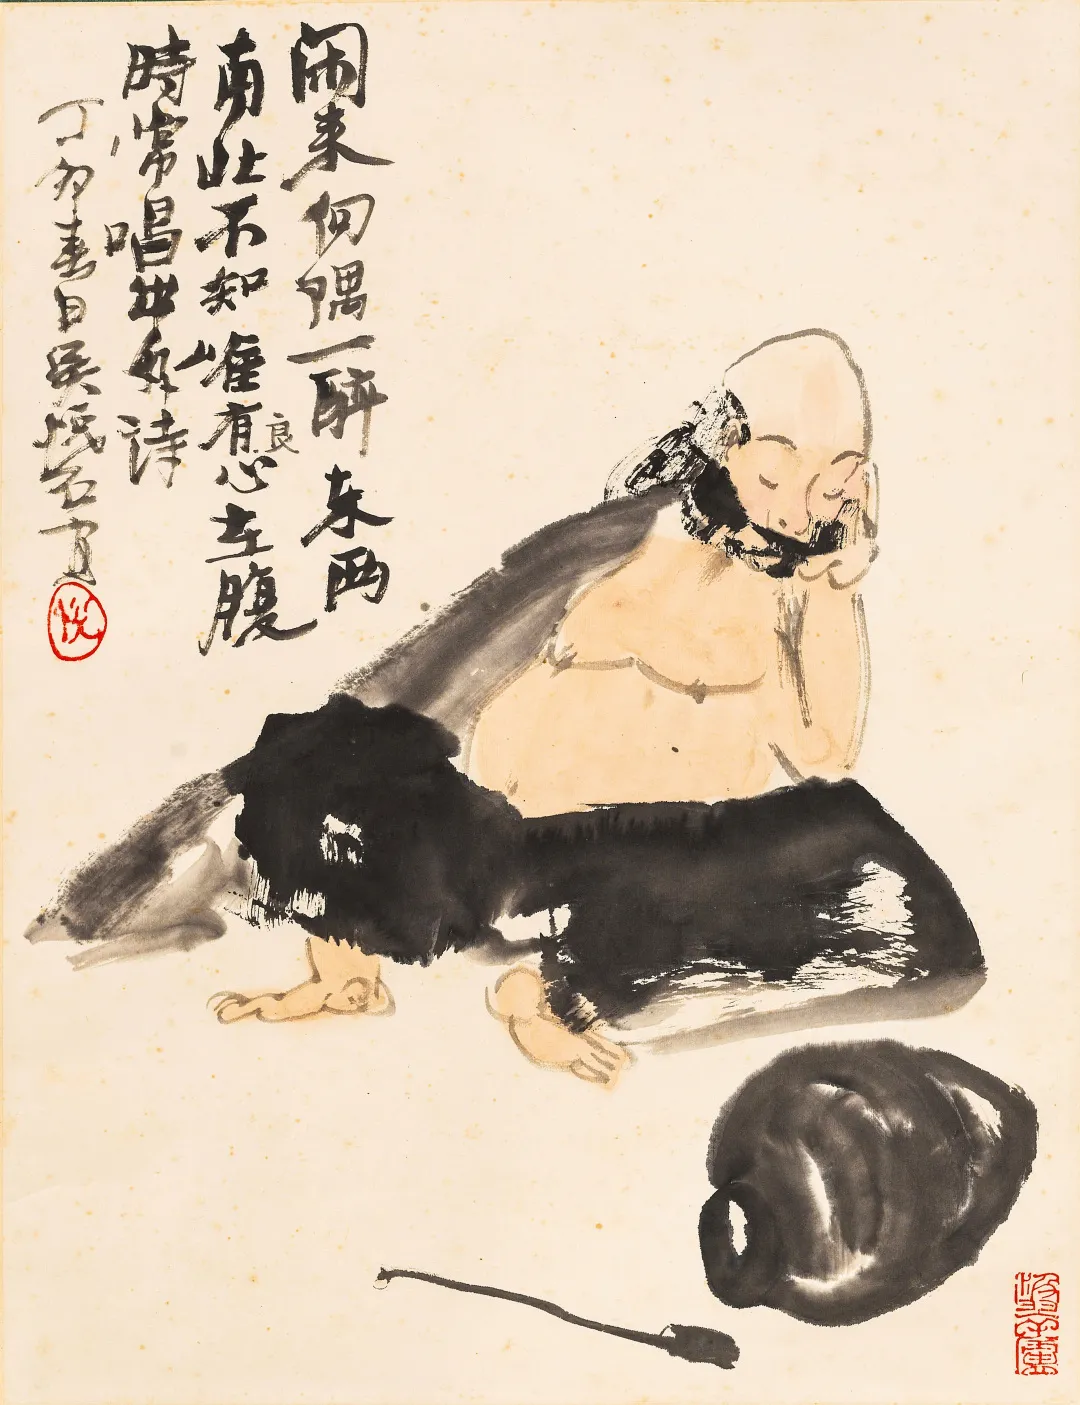 闲来向隅一醉东西
南北不知唯有良心在腹
時常唱出好诗
丁卯春日吴悦石写
悦